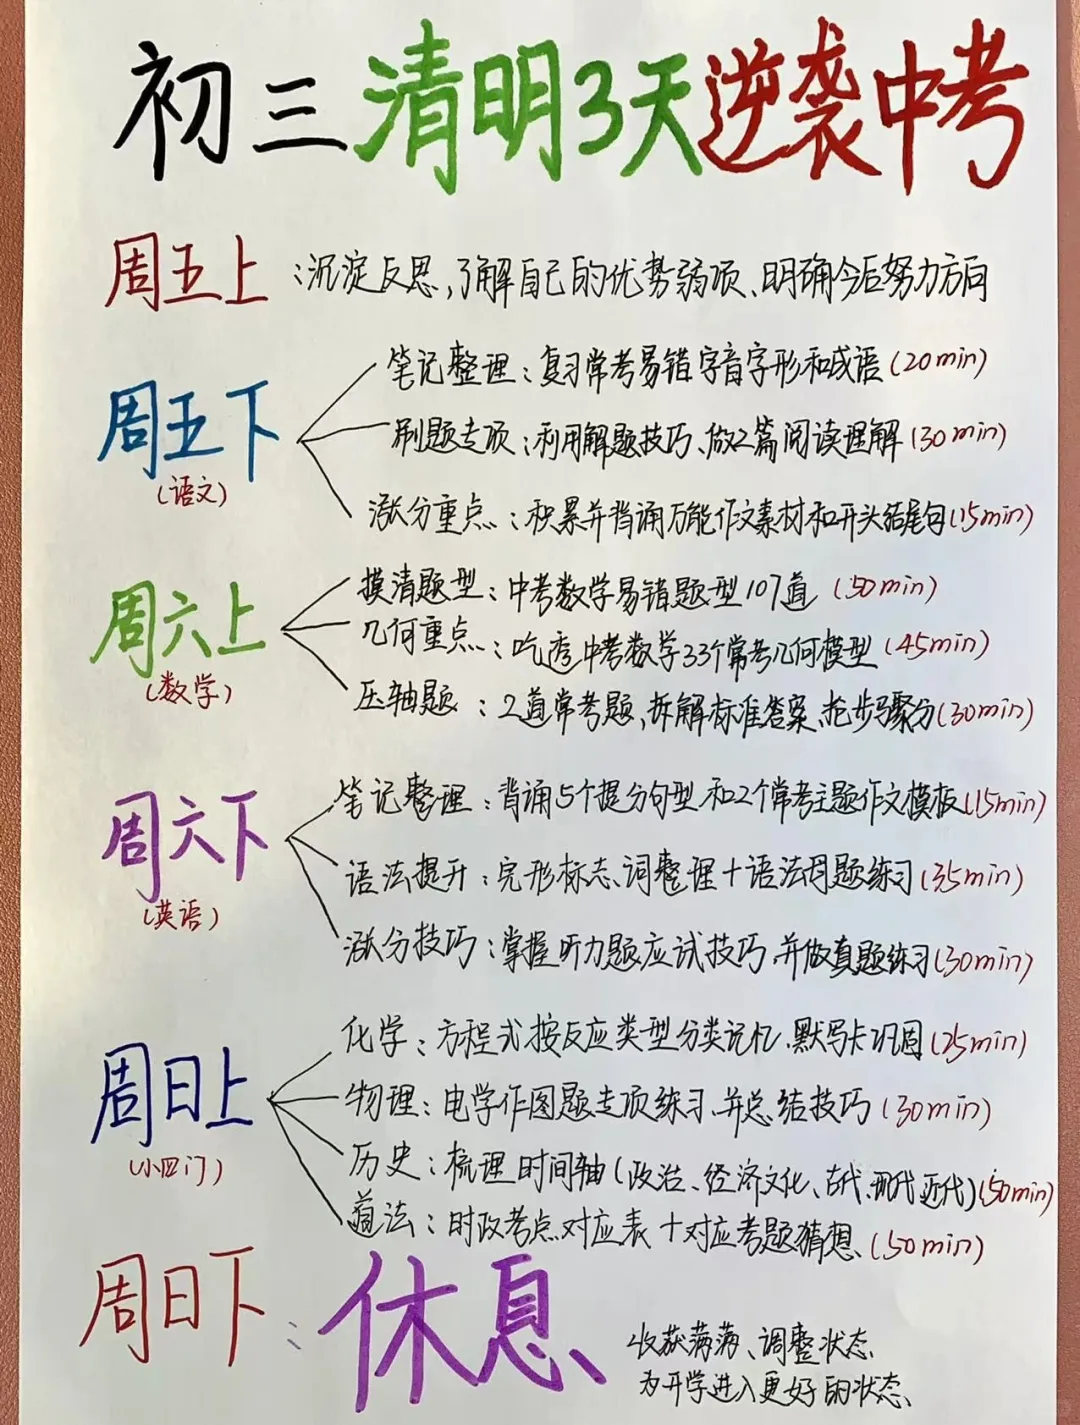 初三清明3天逆袭中考
周五上：沉淀反思,了解自己的优势弱项、明确今后努力方向
周五下
(语文)
笔记整理：复习常考易错字音字形和成语(20min)
刷题专项：利用解题技巧、做2篇阅读理解(30min)
涨分重点：积累并背诵万能作文素材和开头结尾句(15min)
周六上
(数学)
摸清题型：中考数学易错题型107道(50min)
几何重点：吃透中考数学33个常考几何模型(45min)
压轴题：2道常考题,拆解标准答案、抢步骤分(30min)
周六下
(英语)
笔记整理：背诵5个提分句型和2个常考主题作文模板(15min)
语法提升：完形标志、词整理+语法母题练习(35min)
涨分技巧：掌握听力题应试技巧,并做真题练习(30min)
周日上
(小四门)
化学：方程式按反应类型分类记忆、默写卡巩固(25min)
物理：电学作图题专项练习、并总结技巧(30min)
历史：梳理时间轴(政治、经济文化、古代、现代近代)(50min)
道法：时政考点对应表+对应考题猜想、(50min)
周日下：休息、
收获满满、调整状态、
为开学进入更好的状态、